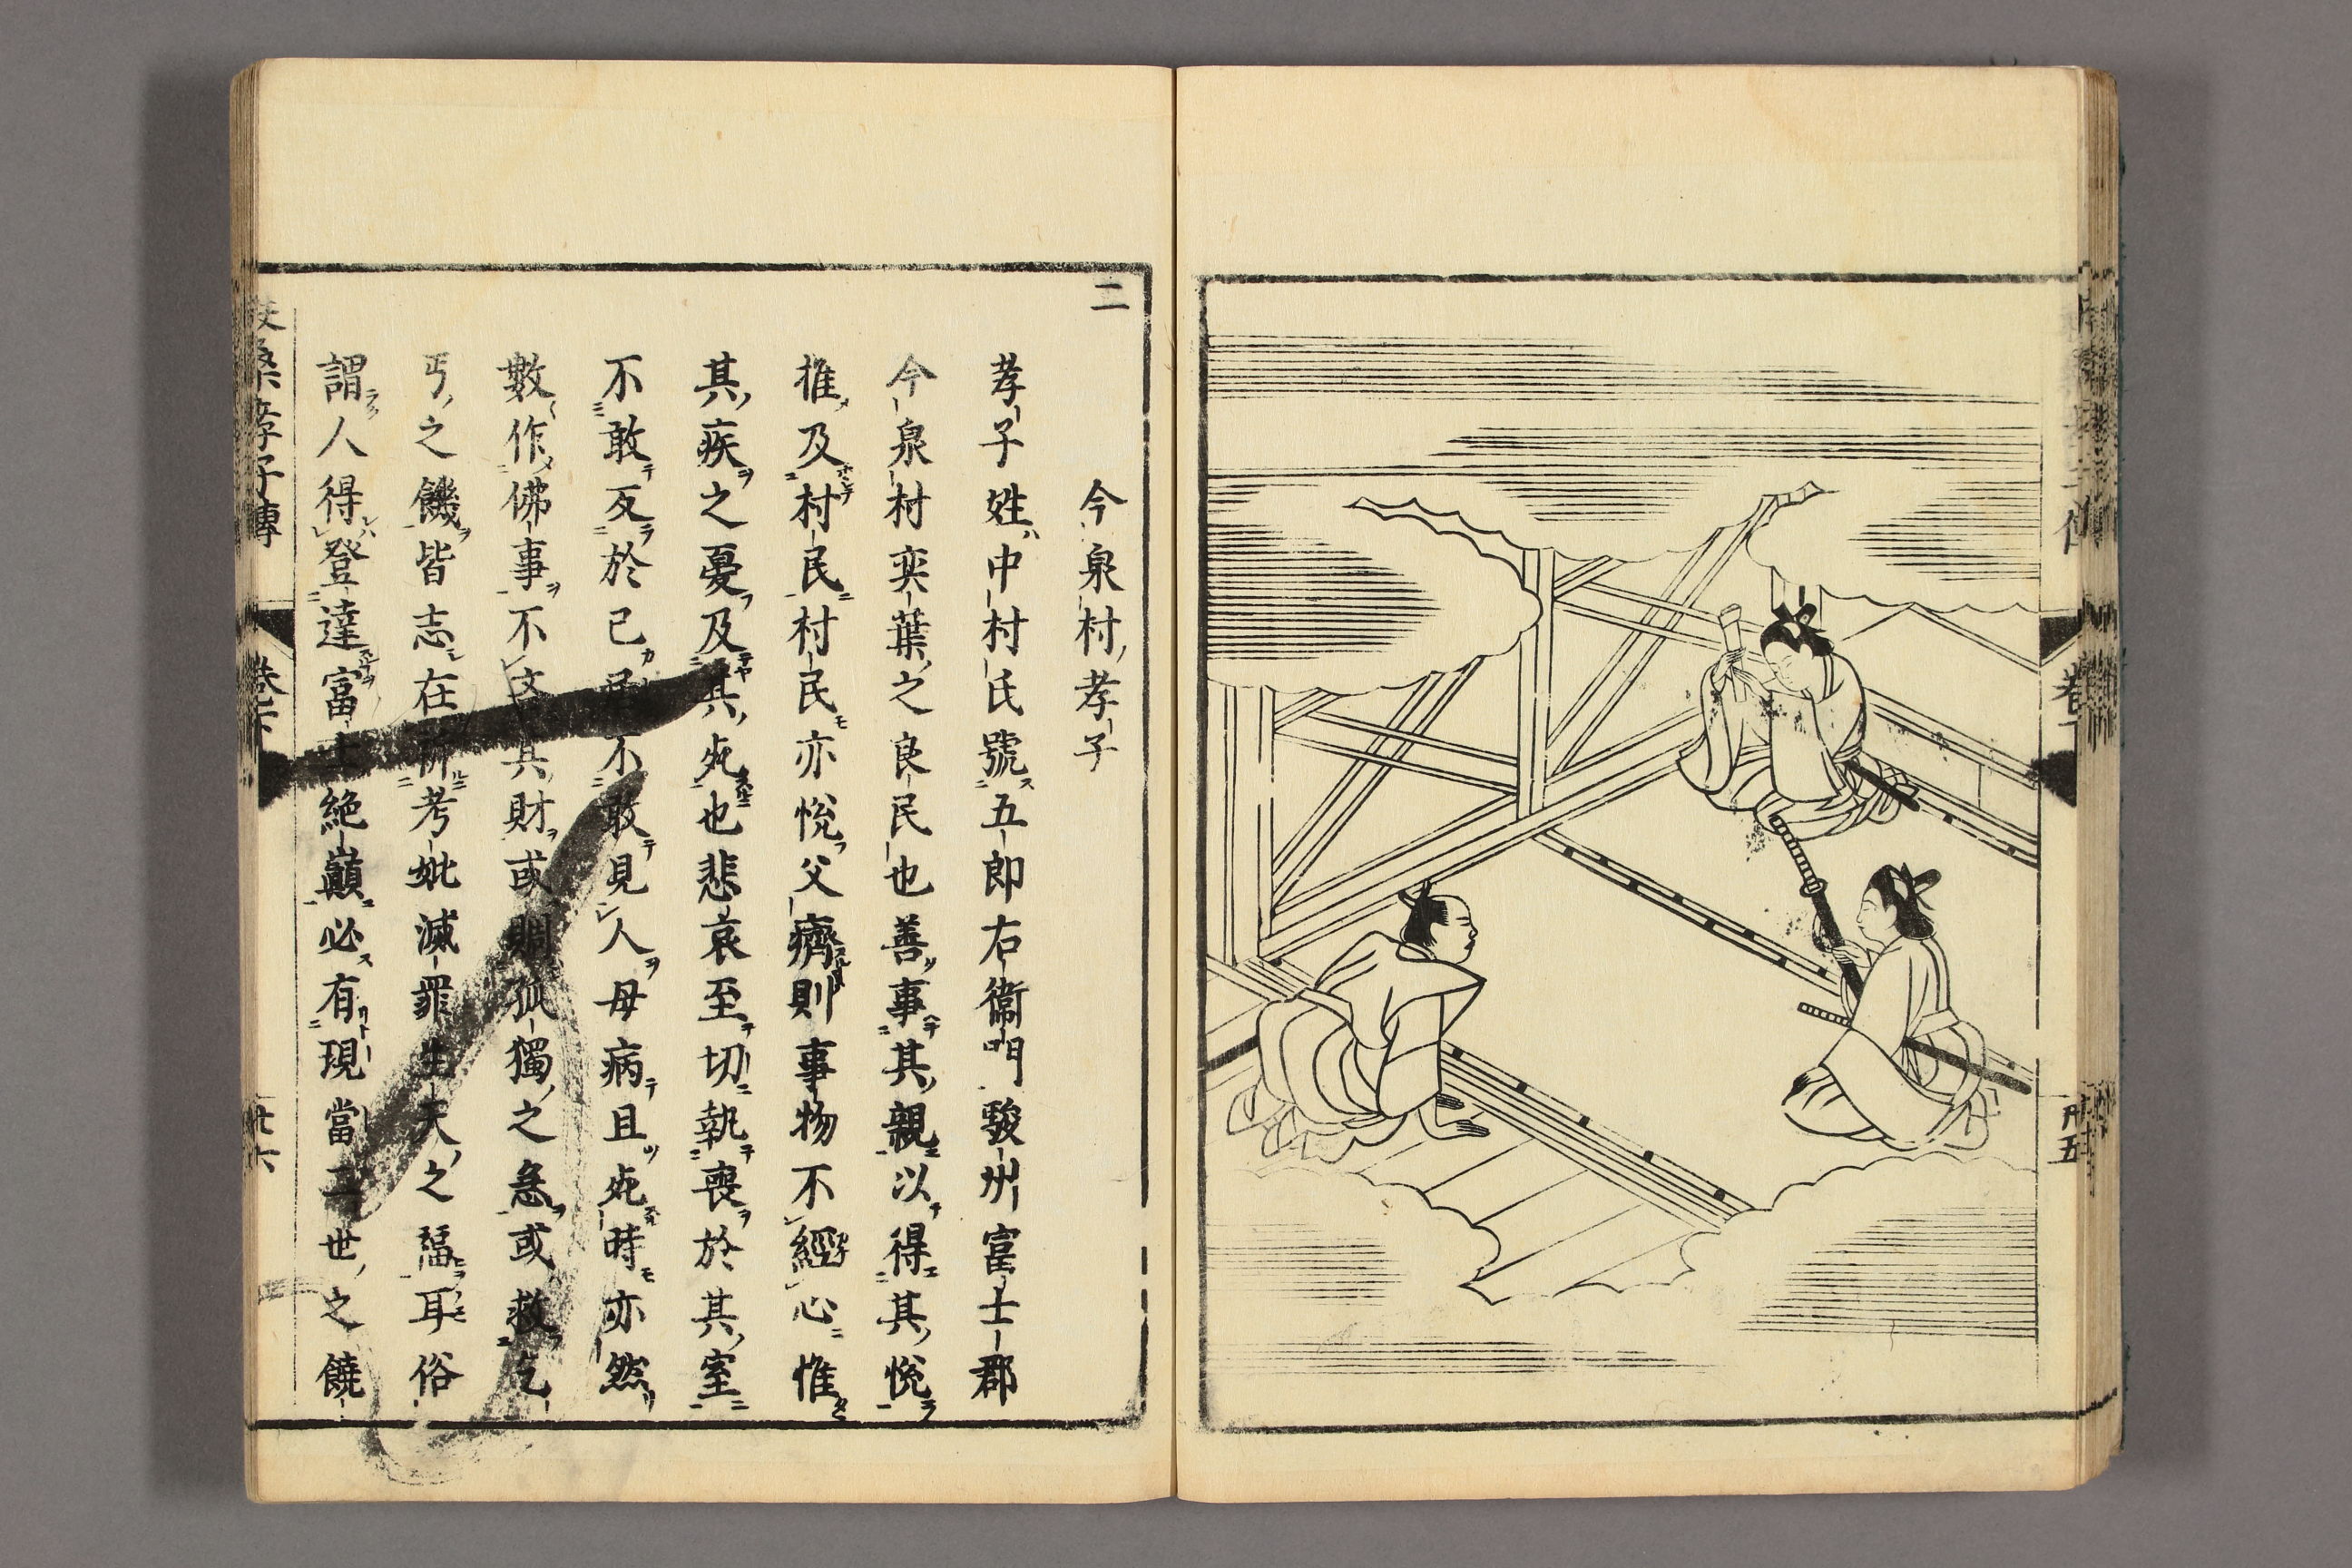 二
今泉村孝子
孝子姓中村氏號五郎右衞門駿州富士郡
今泉村奕葉之良民也善事其親以得其悅
推及村民村民亦悅父癠則事物不經心惟
其疾之憂及其死也悲哀至切執喪於其室
不敢反於己居不敢見人母病且死時亦然
數作佛事不文其財或賙孤獨之急或救乞
丐之饑皆志在祈考妣滅罪生天之福耳俗
謂人得登達富士絶巓必有現當二世之饒
桑孝子傳
卷下
廿六